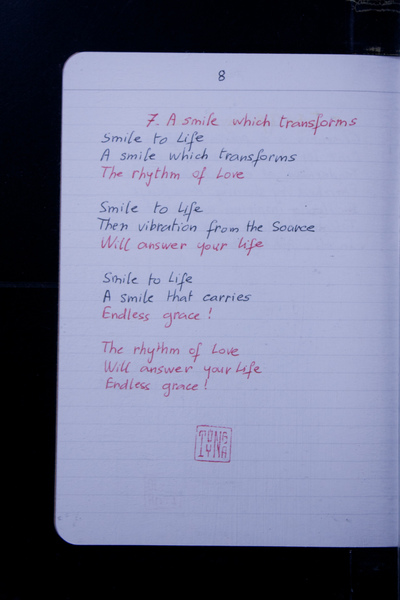 8
7. A smile which transforms
Smile to Life
A smile which transforms
The rhythm of Love
Smile to Life
Then vibration from the Source
Will answer your life
Smile to Life
A smile that carries
Endless grace !
The rhythm of Love
Will answer your Life
Endless grace !